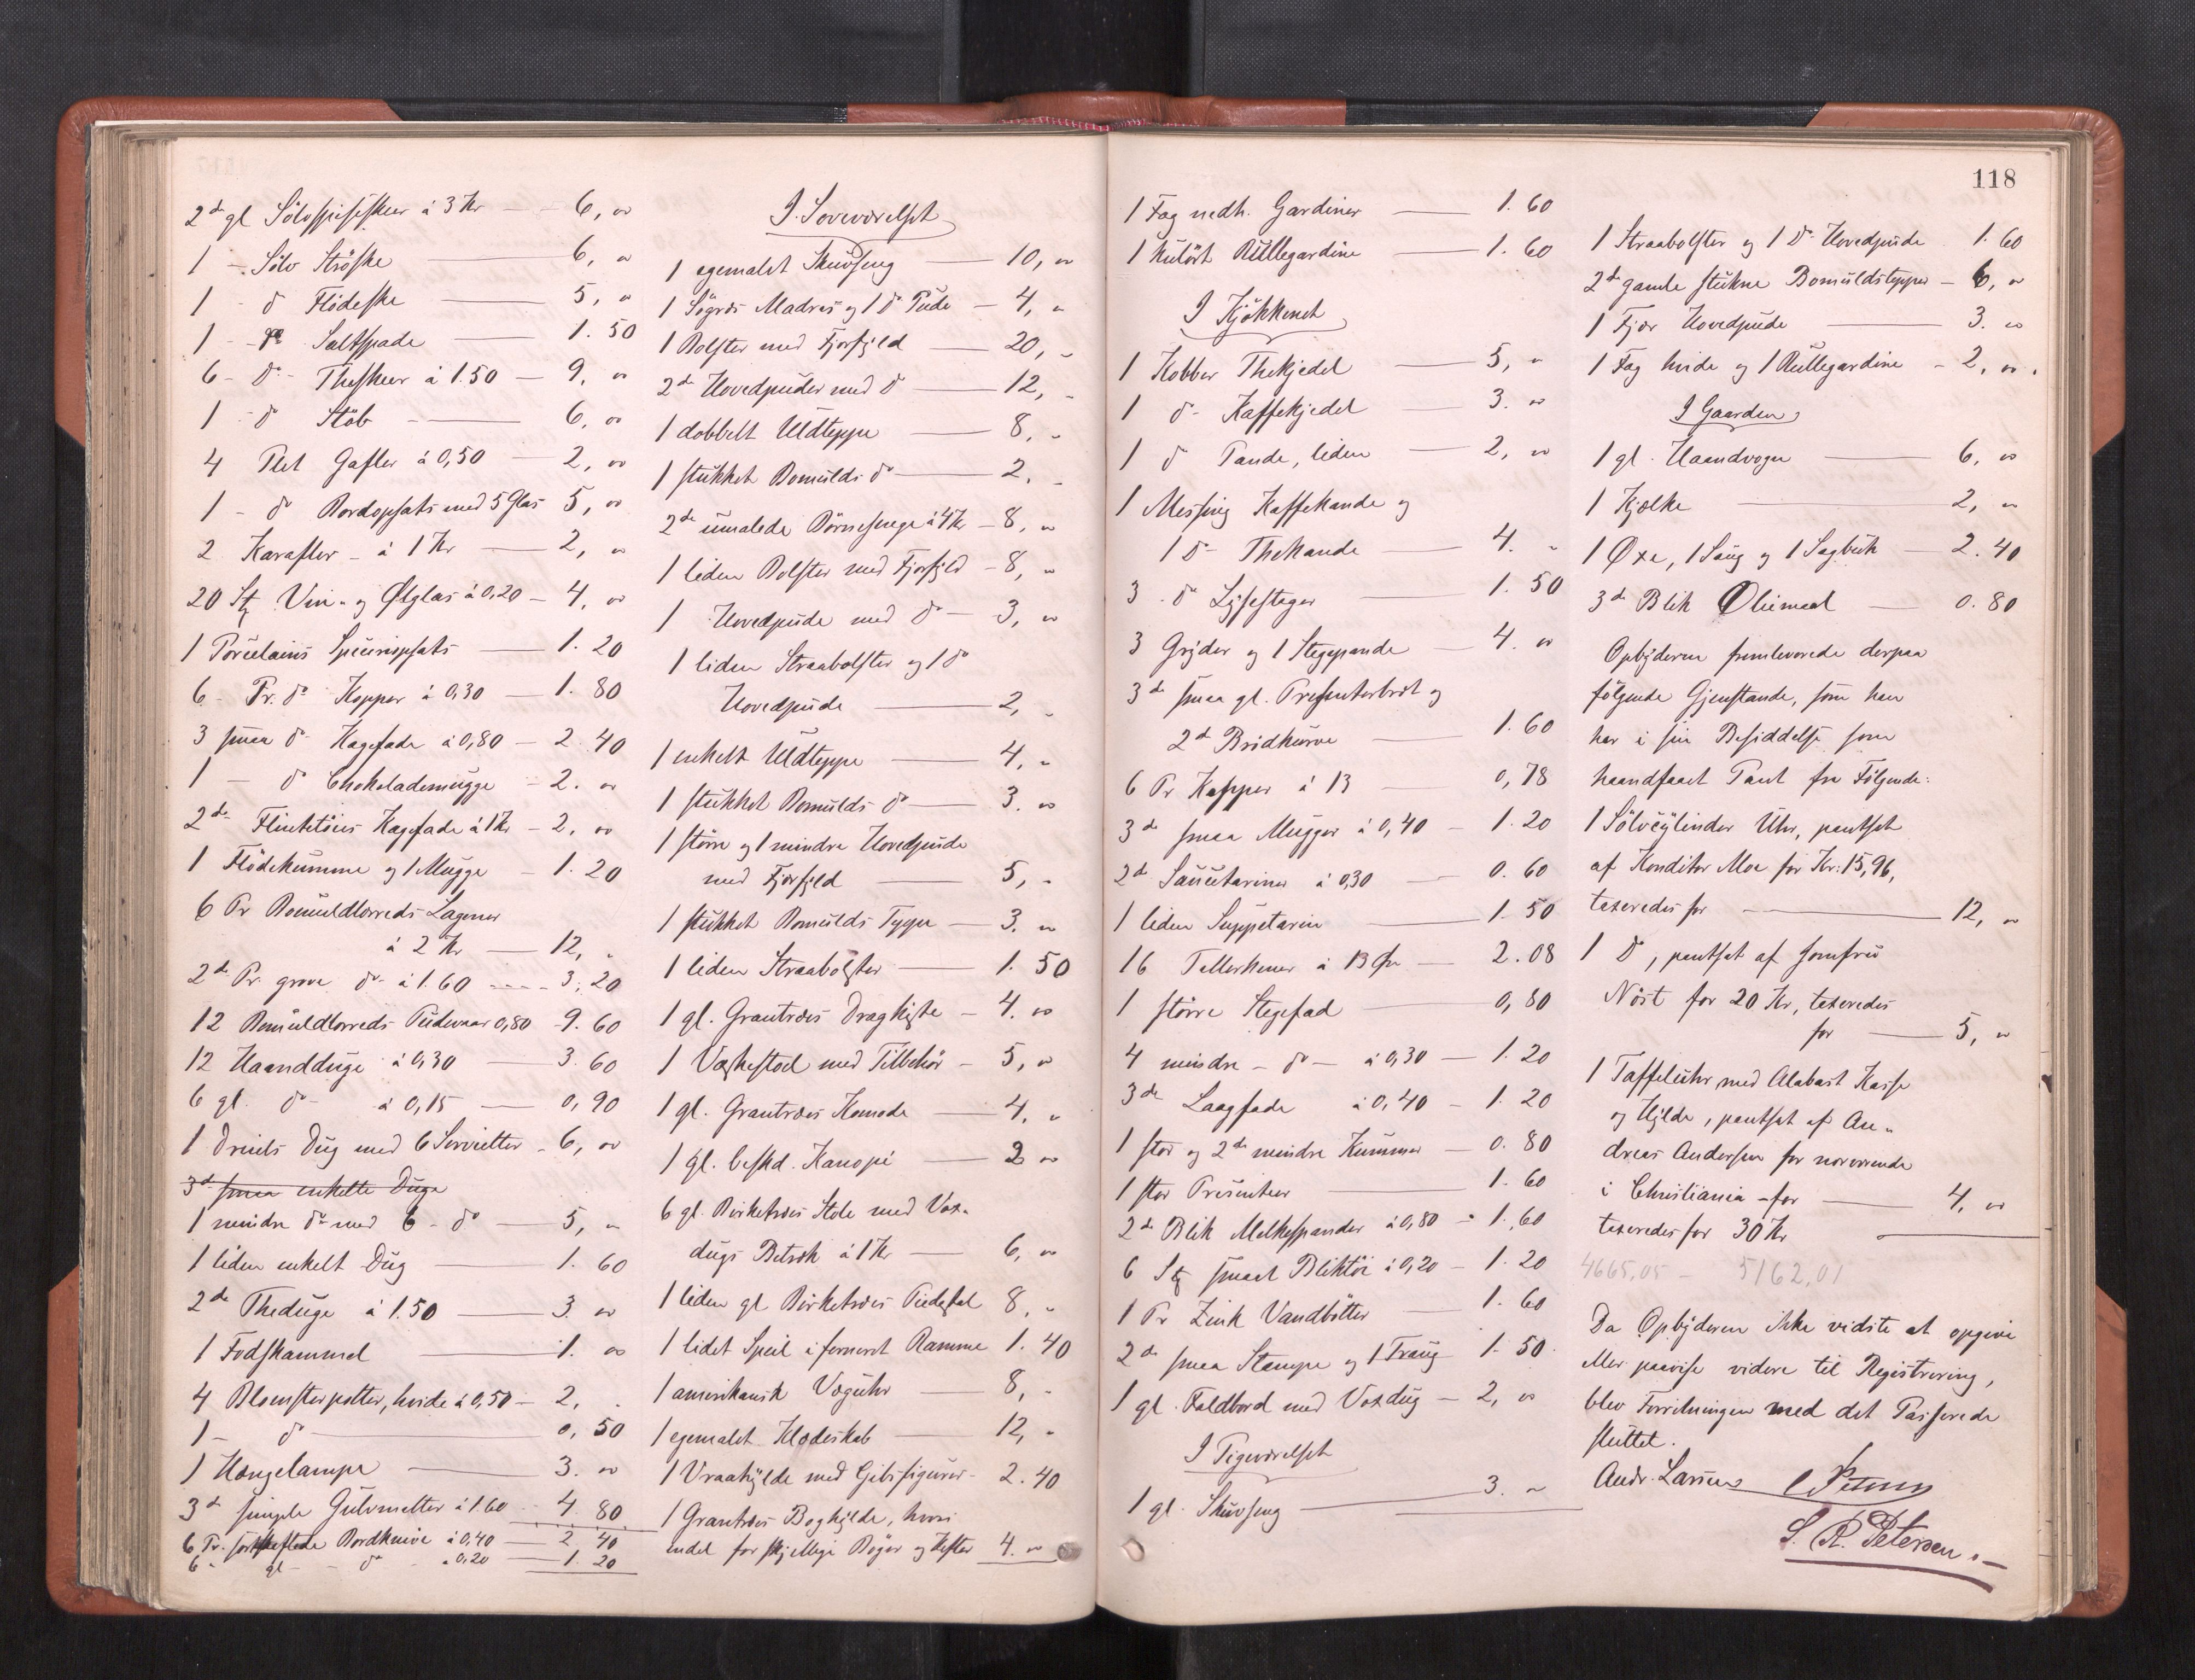 2de gl Sölvspiseskeer à 3 Kr — 6, "
1 - Sölv Ströske — 6, "
1 - do Flödeske — 5, "
1 - do Saltspade — 1. 50
6 - do - Theskeer à 1.50 — 9, "
1 - do Stöb — 6, "
4 Plet Gafler à 0,50 — 2, "
1 - do Bordopsats med 5 Glas 5, "
2 Karafler - à 1 Kr — 2, "
20 Stk Vin- og Ølglas à 0,20 — 4, "
1 Porcelains Specieriopsats — 1. 20
6 - Pr. do Kopper à 0,30 — 1. 80
3 smaa do Kagefade à 0,80 — 2. 40
1 - do Chokolademugge — 2. "
2de Flintetöies Kagefade à 1 Kr — 2, "
1 Flödekumme og 1 Mugge — 1. 20
6 Pr Bomuldlerreds Lagener
à 2 Kr — 12, "
2de Pr. grove do à 1.60 — 3. 20
12 Bomuldlerreds Pudevaar 0,80 - 9. 60
12 Haandduge à 0,30 — 3. 60
6 gl. do - à 0,15 — 0,90
1 Dreiels Dug med 6 Servietter - 6, "
3de smaa enkelte Duge
1 mindre do med 6 - do — 5, "
1 liden enkelt Dug — 1. 60
2de Theduge à 1.50 — 3. "
1 Fodskammel — 1. "
4 Blomsterpotter, hvide à 0,50 — 2, "
1 - do — 0, 50
1 Hængelampe — 3. "
3de simple Gulvmatter à 1.60 - 4. 80
6 Pr. sortskeftede Bordknive à 0,40 — 2. 40
6 - gl - do - à 0,20 — 1. 20
I Soveværelset
1 egemalet Skuvseng — 10, "
1 Sögræs Madras og 1 do Pude — 4, "
1 Bolster med Fjærfyld — 20, "
2de Hovedpuder med do — 12, "
1 dobbelt Uldteppe — 8, "
1 stukket Bomulds do — 2, "
2de umalede Börnesenge à 4 Kr — 8, "
1 liden Bolster med Fjærfyld — 8, "
1 Hovedpude med do — 3, "
1 liden Straabolster og 1 do
Hovedpude — 2, "
1 enkelt Uldteppe — 4, "
1 stukket Bomulds do — 3. "
1 större og 1 mindre Hovedpude
med Fjærfyld — 5, "
1 stukket Bomulds Teppe — 3. "
1 liden Straabolster — 1. 50
1 gl. Grantræes Dragkiste — 4. "
1 Vaskestol med Tilbehör — 5, "
1 gl. Grantræes Komode — 4, "
1 gl. beskd. Kanope — 2 "
6 gl. Birketræes Stole med Vox-
dugs Betræk à 1 Kr — 6, "
1 liden gl Birketræes Piedestal 8, "
1 lidet Speil i ferneret Ramme 1. 40
1 amerikansk Væguhr — 8, "
1 egemalet Klædeskab — 12, "
1 Vraahylde med Gibsfigurer - 2. 40
1 Grantræes Boghylde, hvori
endel forskjellige Böger og Hefter 4. "
118
1 Fag nedh. Gardiner — 1. 60
1 kulört Rullegardine — 1. 60
I Kjökkenet
1 Kobber Thekjedel — 5, "
1 do - Kaffekjedel — 3. "
1 do Pande, liden — 2, "
1 Messing Kaffekande og
1 do - Thekande — 4. "
3 - do Lysestager — 1. 50
3 Gryder og 1 Stegepande — 4. "
3de smaa gl. Presenterbret og
2de Brödkurve — 1. 60
6 Pr Kopper à 13 — 0,78
3de smaa Mugger à 0,40 — 1. 20
2de Saucetariner à 0,30 — 0. 60
1 liden Suppetarin — 1. 50
16 Tallerkener à 13 Øre — 2. 08
1 större Stegefad — 0,80
4 mindre - do - à 0,30 — 1. 20
3de Laagfade à 0,40 — 1. 20
1 stor og 2de mindre Kummer — 0. 80
1 stor Presenteer — 1. 60
2de Blik Melkespander à 0,80 - 1. 60
6 Stk smaat Bliktöi à 0,20 — 1. 20
1 Pr Zink Vandbötter — 1. 60
2de smaa Stampe og 1 Traug 1. 50
1 gl. Faldbord med Voxdug — 2, "
I Pigeværelset
1 gl. Skuvseng — 3. "
1 Straabolster og 1 do Hovedpude 1. 60
2de gamle stukne Bomuldstepper — 6, "
1 Fjær Hovedpude — 3. "
1 Fag hvide og 1 Rullegardine - 2, "
I Gaarden
1 gl. Haandvogn — 6, "
1 Kjælke — 2, "
1 Øxe, 1 Saug og 1 Sagbuk — 2. 40
3de Blik Oliemaal — 0. 80
Opbyderen fremleverede derpaa
fölgende Gjenstande, som han
har i sin Besiddelse som
haandfaaet Pant fra Fölgende:
1 Sölvcylinder Uhr, pantsat
af Konditor Moe for Kr: 15,96,
taxeredes for — 12, "
1 do, pantsat af Jomfru
Nöst for 20 Kr, taxeredes
for — 5, "
1 Taffeluhr med Alabast Kasse
og Hylde, pantsat af An-
dreas Andersen for nærværende
i Christiania - for — 4, "
taxeredes for 30 Kr
4665,05 - 5162,01
Da Opbyderen ikke vidste at opgive
eller paavise videre til Registrering,
blev Forretningen med det Passerede
sluttet.
Andr. Larsen
S. R. Petersen.